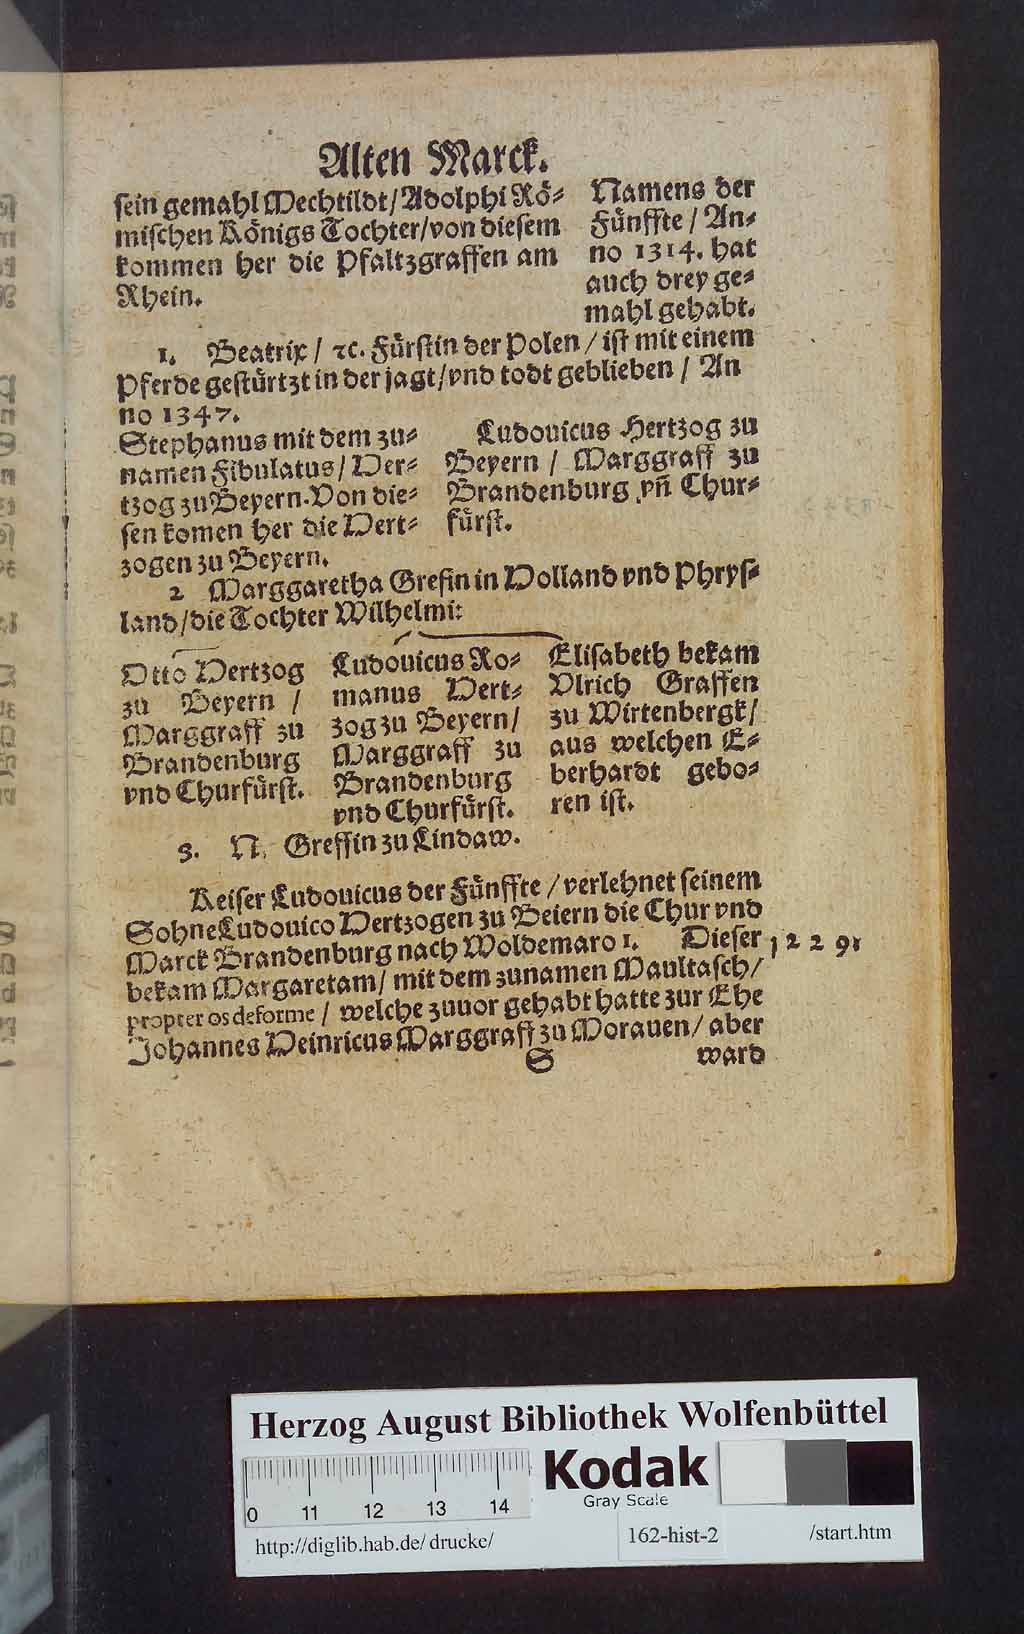 Alten Marck.
sein gemahl Mechtildt/Adolphi Rö⸗
mischen Königs Tochter/von diesem
kommen her die Pfaltzgraffen am
Rhein.
Namens der
Fünffte / An⸗
no 1314. hat
auch drey ge⸗
mahl gehabt.
1. Beatrix / ꝛc. Fürstin der Polen / ist mit einem
Pferde gestürtzt in der jagt/vnd todt geblieben / An
no 1347.
Stephanus mit dem zu⸗
namen Fibulatus/ Her⸗
tzog zu Beyern. Von die⸗
sen komen her die Hert⸗
zogen zu Beyern.
Ludouicus Hertzog zu
Beyern / Marggraff zu
Brandenburg vñ Chur⸗
fürst.
2 Marggaretha Grefin in Holland vnd Phrys⸗
land/die Tochter Wilhelmi:
Otto Hertzog
zu Beyern /
Marggraff zu
Brandenburg
vnd Churfürst.
Ludouicus Ro⸗
manus Hert⸗
zog zu Beyern/
Marggraff zu
Brandenburg
vnd Churfürst.
Elisabeth bekam
Vlrich Graffen
zu Wirtenbergk/
aus welchen E⸗
berhardt gebo⸗
ren ist.
3. N. Greffin zu Lindaw.
Keiser Ludouicus der Fünffte / verlehnet seinem
Sohne Ludouico Hertzogen zu Beiern die Chur vnd
Marck Brandenburg nach Woldemaro 1. Dieser
bekam Margaretam/ mit dem zunamen Maultasch/
propter os deforme / welche zuuor gehabt hatte zur Ehe
Johannes Heinricus Marggraff zu Morauen/ aber
S ward
Herzog August Bibliothek Wolfenbüttel
Kodak
Gray Scale
0 11 12 13 14
http://diglib.hab.de/drucke/
162-hist-2
/start.htm